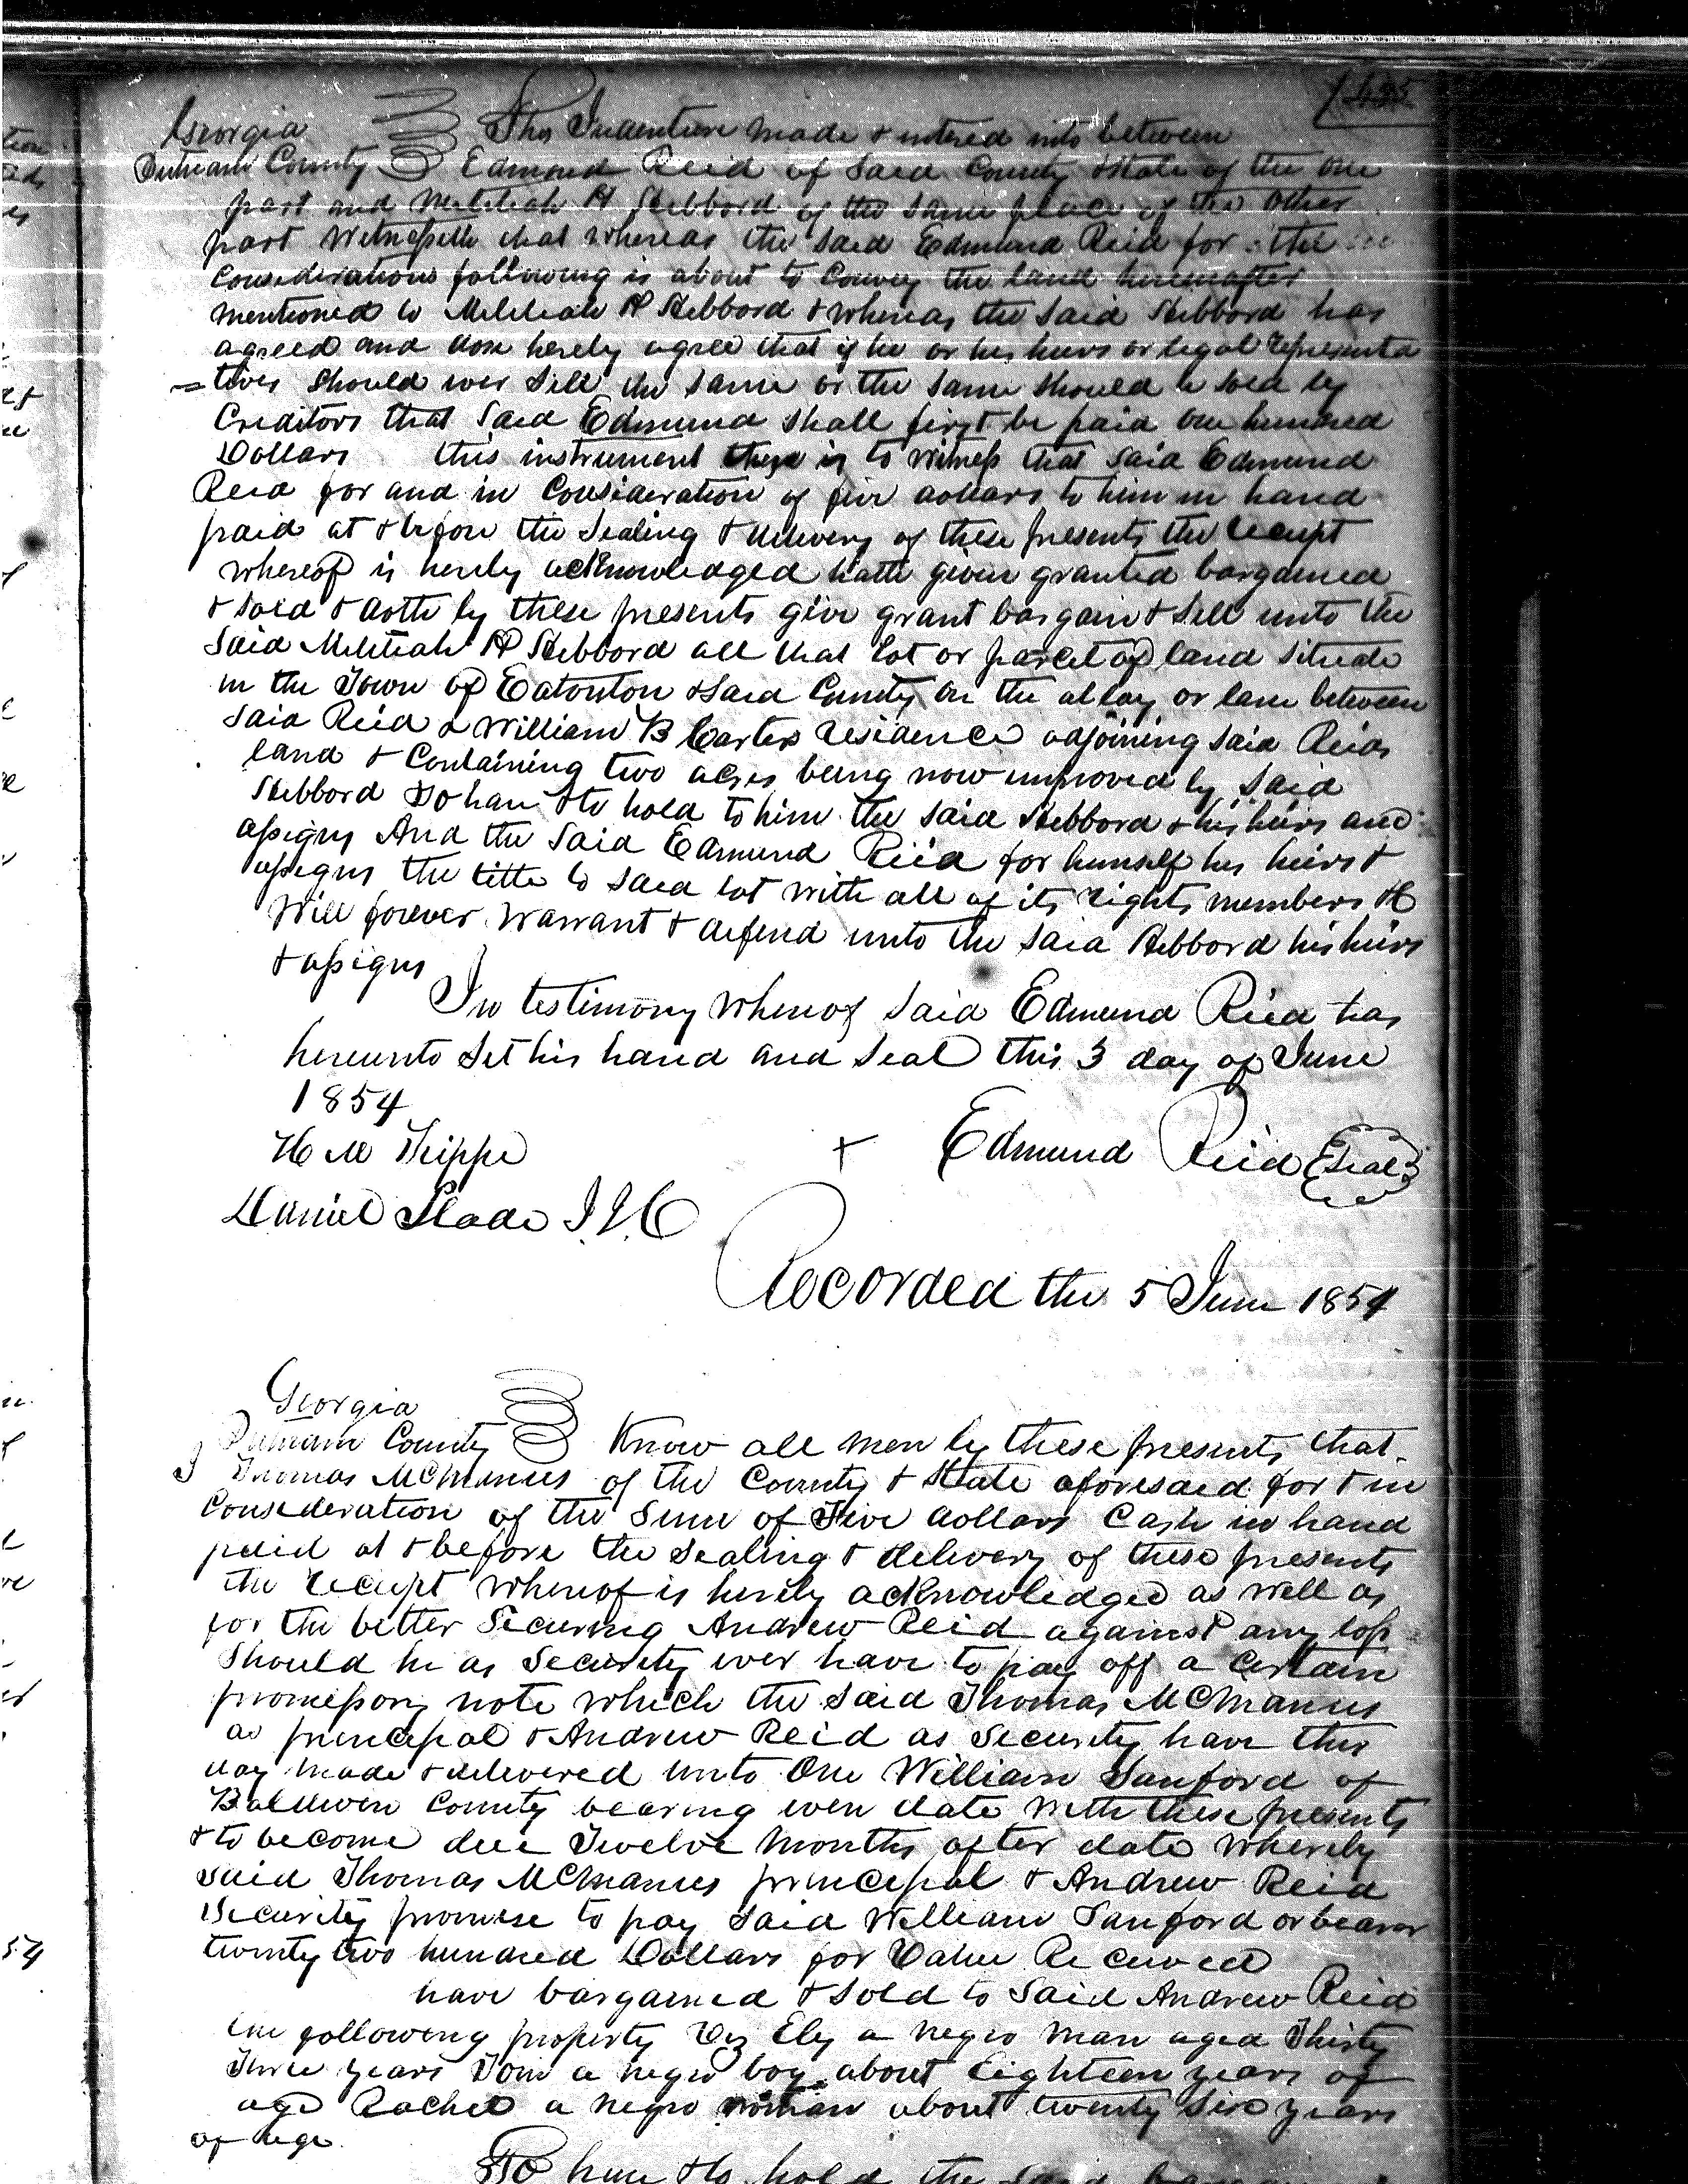 435
Georgia This Indenture made & entered into between
Putnam County Edmond Reid of Said County & State of the one
part and Meletiah H Hebbord of the Same place of the other
part Witnesseth that whereas the Said Edmund Reid for the
Considerations following is about to Convey the land hereinafter
mentioned to Meletiah H Hebbord & whereas the Said Hebbord has
agreed and dose hereby agree that if he or his heirs or legal representa
=tives Should ever Sell the Same or the Same Should be Sold by
Creditors that Said Edmund Shall first be paid one hundred
Dollars this instrument is to witness that Said Edmund
Reid for and in Consideration of five dollars to him in hand
paid at & before the Sealing & delivery of these presents the receipt
whereof is hereby acknowledged hath given granted bargained
& Sold & doth by these presents give grant bargain & Sell unto the
Said Meletiah H Hebbord all that Lot or parcel of land Situate
in the Town of Eatonton & Said County on the alley or lane between
Said Reid & William B Carters residence adjoining Said Reids
land & Containing two acres being now improved by Said
Hebbord To have & to hold to him the Said Hebbord & his heirs and
assigns And the Said Edmund Reid for himself his heirs &
assigns the title to Said lot with all of its rights members &C
Will forever Warrant & defend unto the Said Hebbord his heirs
& assigns
In testimony whereof Said Edmund Reid has
hereunto Set his hand and Seal this 3 day of June
1854
H M Trippe + Edmund Reid Seal
Daniel Slade J.I.C
Recorded the 5 June 1854
Georgia
Putnam County Know all men by these presents that
I Thomas McManus of the County & State aforesaid for & in
Consideration of the Sum of Five dollars Cash in hand
paid at & before the Sealing & delivery of these presents
the receipt whereof is hereby acknowledged as well as
for the better Securing Andrew Reid against any loss
Should he as Security ever have to pay off a Certain
promissory note which the Said Thomas McManus
as principal & Andrew Reid as Security have this
day made & delivered unto One William Sanford of
Baldwin County bearing even date with these presents
& to become due Twelve months after date whereby
Said Thomas McManus principal & Andrew Reid
Security promise to pay Said William Sanford or bearer
twenty two hundred Dollars for Value Received
have bargained & Sold to Said Andrew Reid
the following property Viz Ely a negro man aged Thirty
Three years Tom a negro boy about Eighteen years of
age Rachel a negro woman about twenty Six years
of age.
To have & to hold the Said